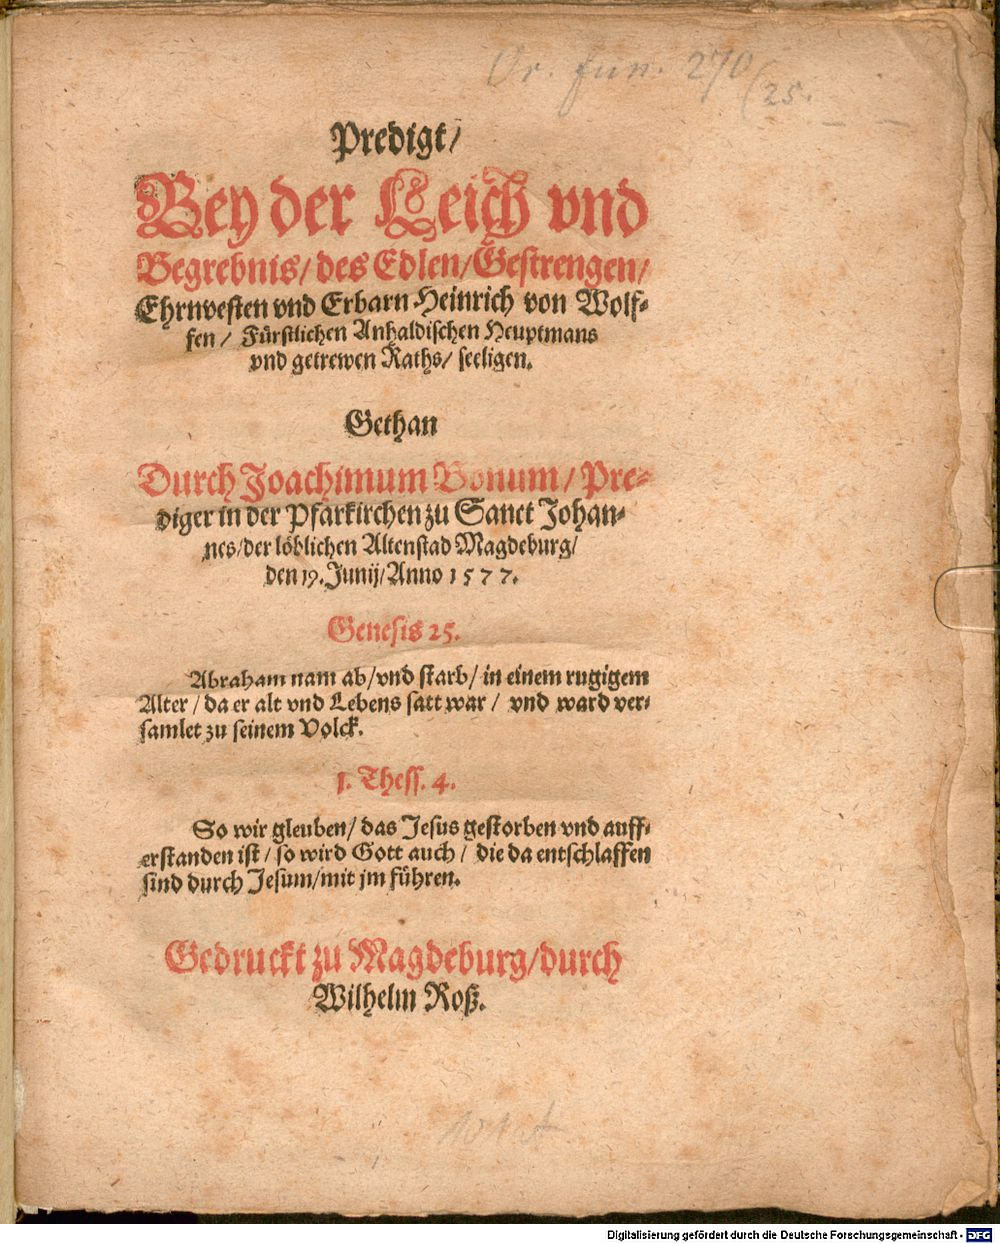 Or. fun. 270
(25.
Predigt/
Bey der Leich vnd
Begrebnis/ des Edlen/ Gestrengen/
Ehrnvesten vnd Erbarn Heinrich von Wolf-
fen/ Fürstlichen Anhaldischen Heuptmans
vnd getrewen Raths/ seeligen.
Gethan
Durch Joachimum Bonum/ Pre-
diger in der Pfarkirchen zu Sanct Johan-
nes/ der löblichen Altenstad Magdeburg/
den 19. Junij/ Anno 1577.
Genesis 25.
Abraham nam ab/ vnd starb/ in einem rugigem
Alter/ da er alt vnd Lebens satt war/ vnd ward ver-
samlet zu seinem Volck.
1. Thess. 4.
So wir gleuben/ das Jesus gestorben vnd auff-
erstanden ist/ so wird Gott auch/ die da entschlaffen
sind durch Jesum/ mit jm führen.
Gedruckt zu Magdeburg/ durch
Wilhelm Roß.
Digitalisierung gefördert durch die Deutsche Forschungsgemeinschaft - DFG